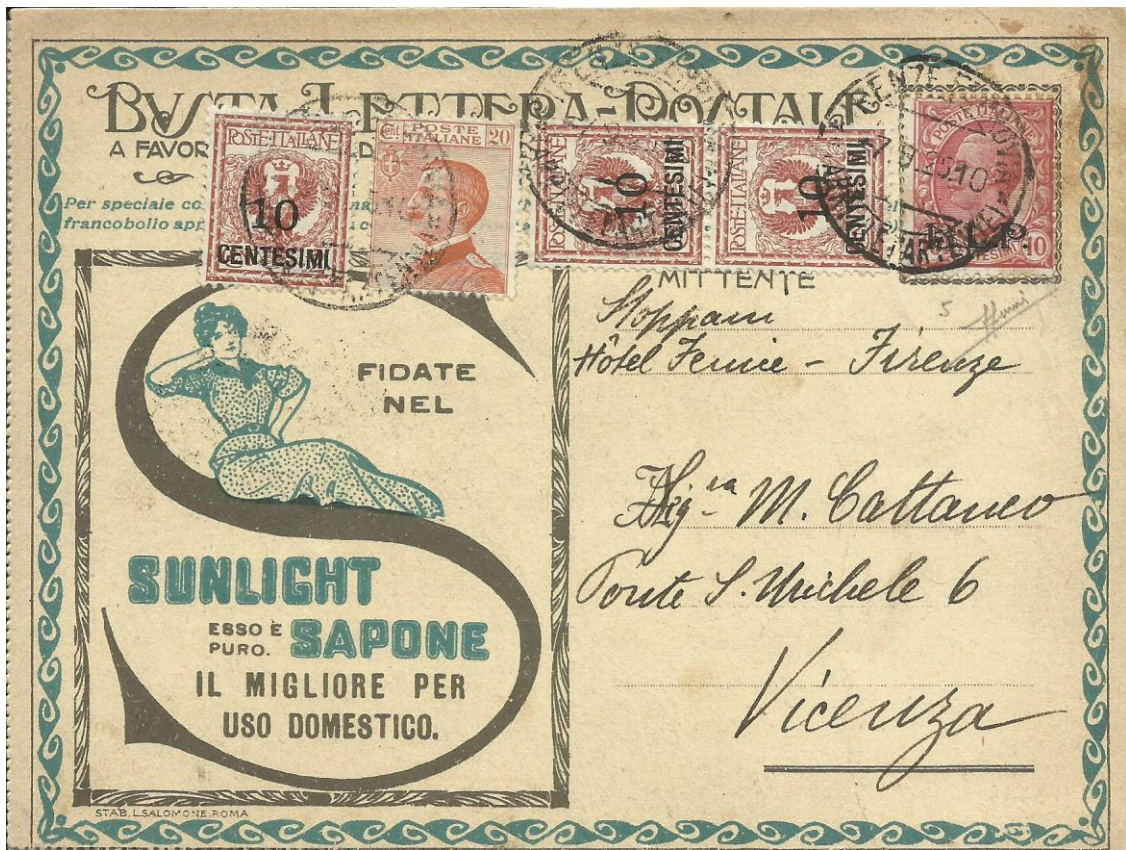 BVSTA LETTERA-POSTALE
A FAVOR
Per speciale co
francobollo app
POSTE ITALIANE
10
CENTESIMI
Cent. POSTE 20
ITALIANE
POSTE ITALIANE
10
CENTESIMI
POSTE ITALIANE
10
CENTESIMI
POSTE ITALIANE
B.L.P.
10
FIRENZE
MITTENTE
Stoppani
Hôtel Fenice - Firenze
5
FIDATE
NEL
Sig.ra M. Cattaneo
Ponte S. Michele 6
Vicenza
SUNLIGHT
ESSO È
PURO. SAPONE
IL MIGLIORE PER
USO DOMESTICO.
STAB. L. SALOMONE, ROMA